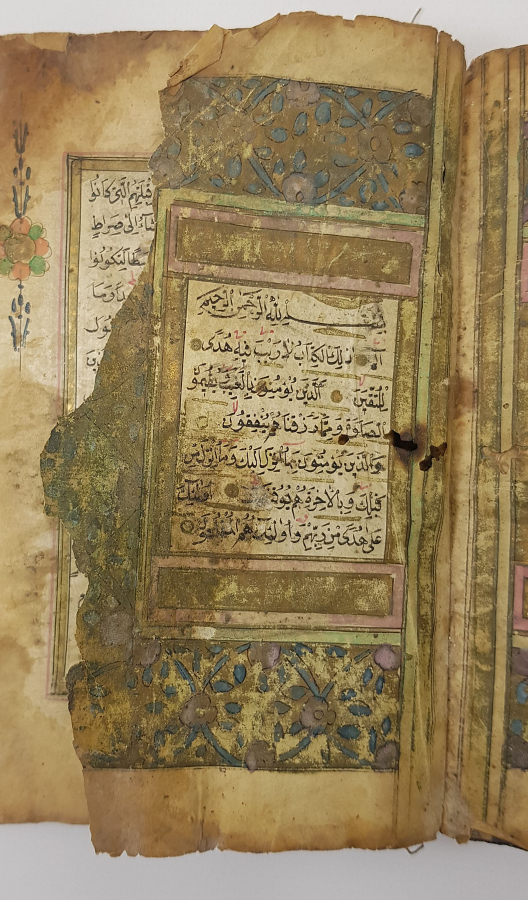 بِسْمِ اللّٰهِ الرَّحْمٰنِ الرَّحِيمِ
الم ذٰلِكَ الْكِتَابُ لَا رَيْبَ فِيهِ هُدًى
لِلْمُتَّقِينَ الَّذِينَ يُؤْمِنُونَ بِالْغَيْبِ وَيُقِيمُونَ
الصَّلٰوةَ وَمِمَّا رَزَقْنَاهُمْ يُنْفِقُونَ
وَالَّذِينَ يُؤْمِنُونَ بِمَا اُنْزِلَ اِلَيْكَ وَمَا اُنْزِلَ مِنْ
قَبْلِكَ وَبِالْاٰخِرَةِ هُمْ يُوقِنُونَ اُولٰئِكَ
عَلٰى هُدًى مِنْ رَبِّهِمْ وَاُولٰئِكَ هُمُ الْمُفْلِحُونَ
قِبْلَتِهِمُ الَّتِي كَانُوا
يَشَاءُ اِلٰى صِرَاطٍ
لِتَكُونُوا
وَمَا